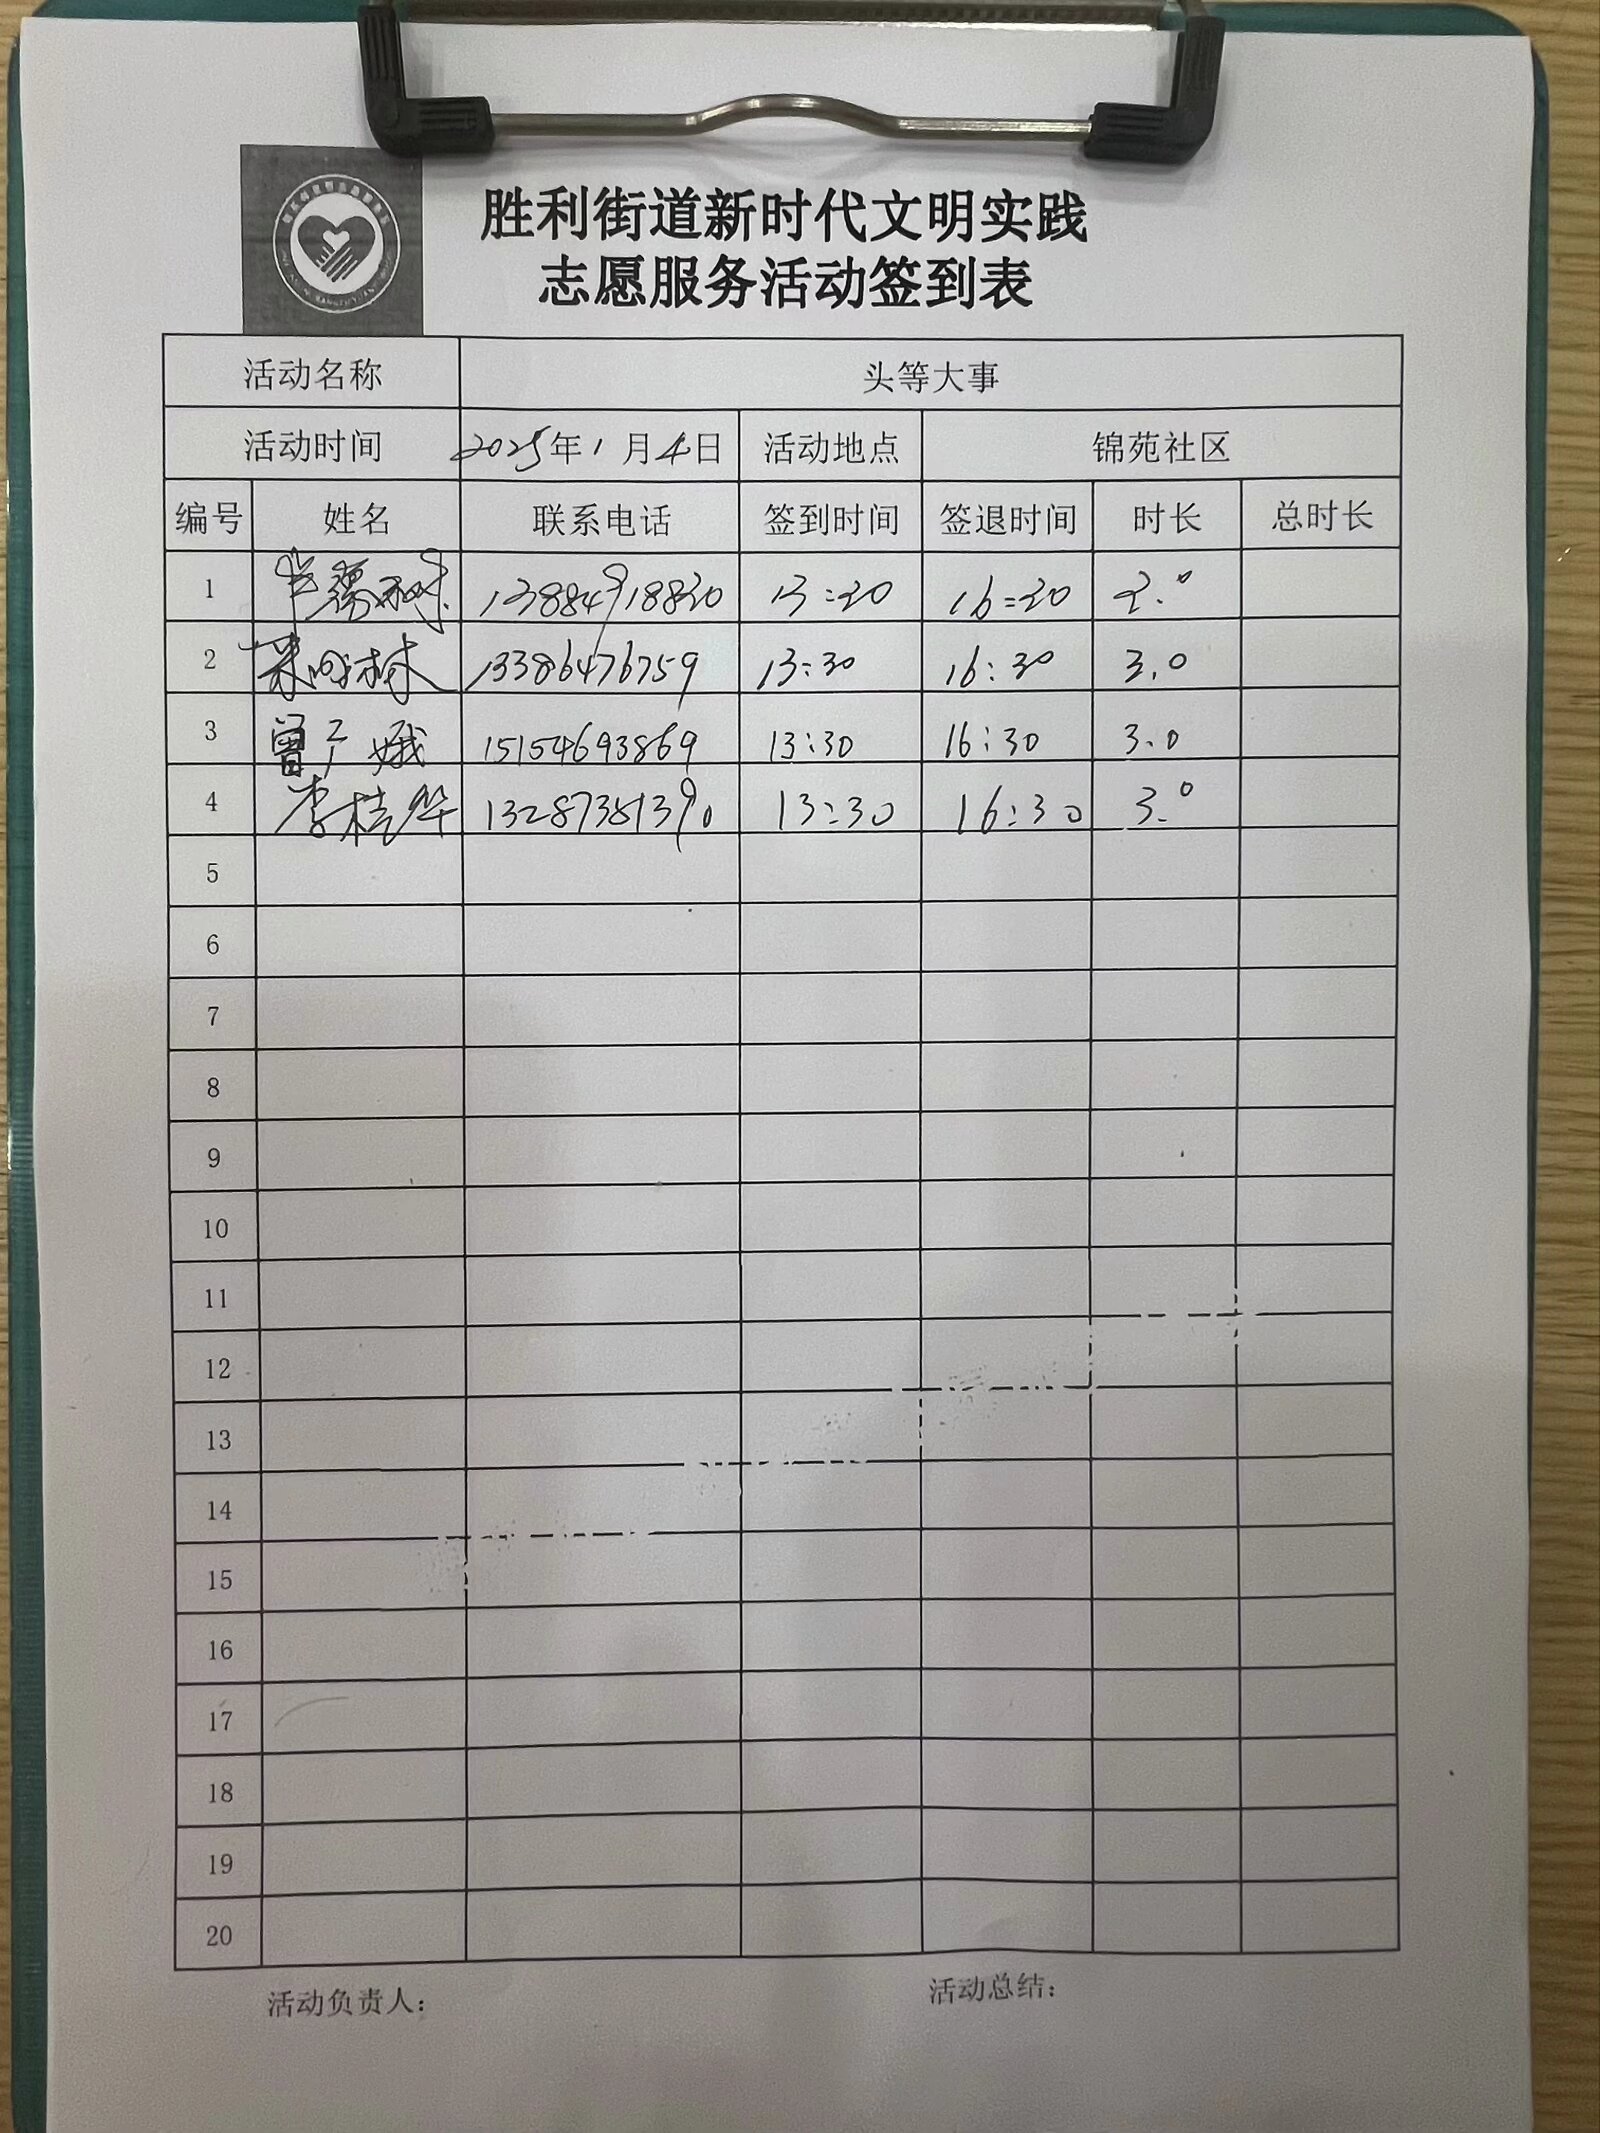 胜利街道新时代文明实践
志愿服务活动签到表
活动名称 头等大事
活动时间 2025年1月4日 活动地点 锦苑社区
编号 姓名 联系电话 签到时间 签退时间 时长 总时长
1 13884918820 13:20 16:20 3.0
2 13386476759 13:30 16:30 3.0
3 曾广娥 15154693869 13:30 16:30 3.0
4 李桂华 13287381390 13:30 16:30 3.0
5
6
7
8
9
10
11
12
13
14
15
16
17
18
19
20
活动负责人： 活动总结：